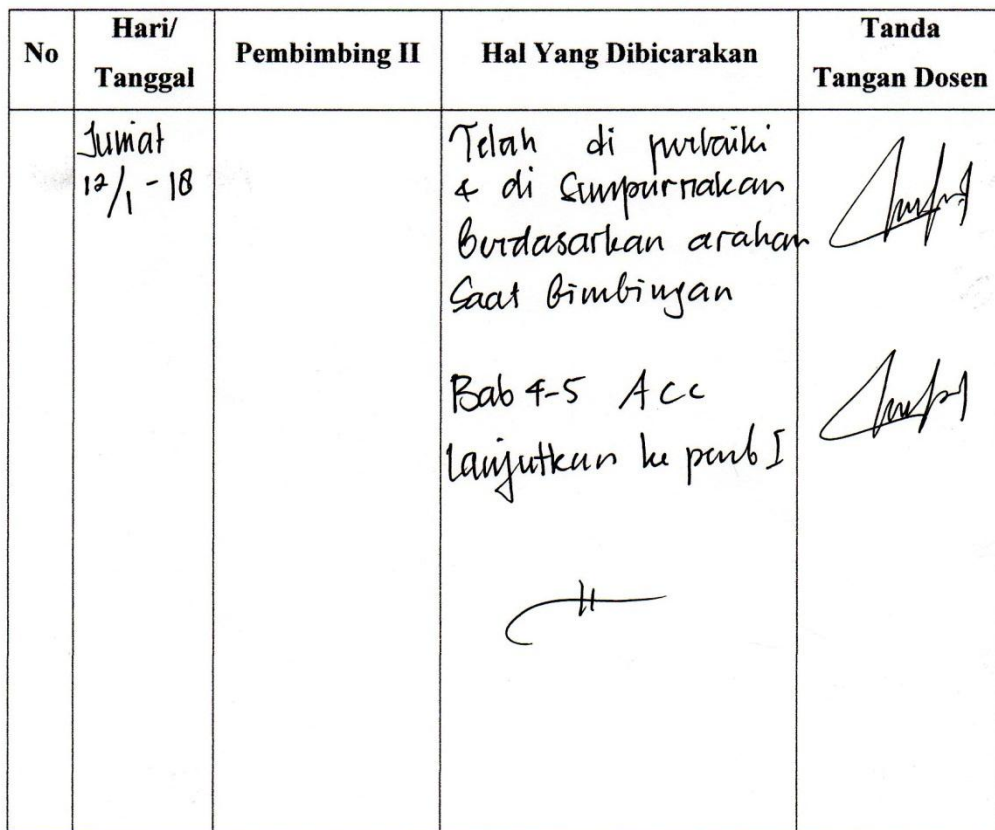 No
Hari/
Tanggal
Pembimbing II
Hal Yang Dibicarakan
Tanda
Tangan Dosen
Jumat
12/1 - 18
Telah di perbaiki
& di Sempurnakan
Berdasarkan arahan
Saat Bimbingan
Bab 4-5 Acc
lanjutkan ke pemb I